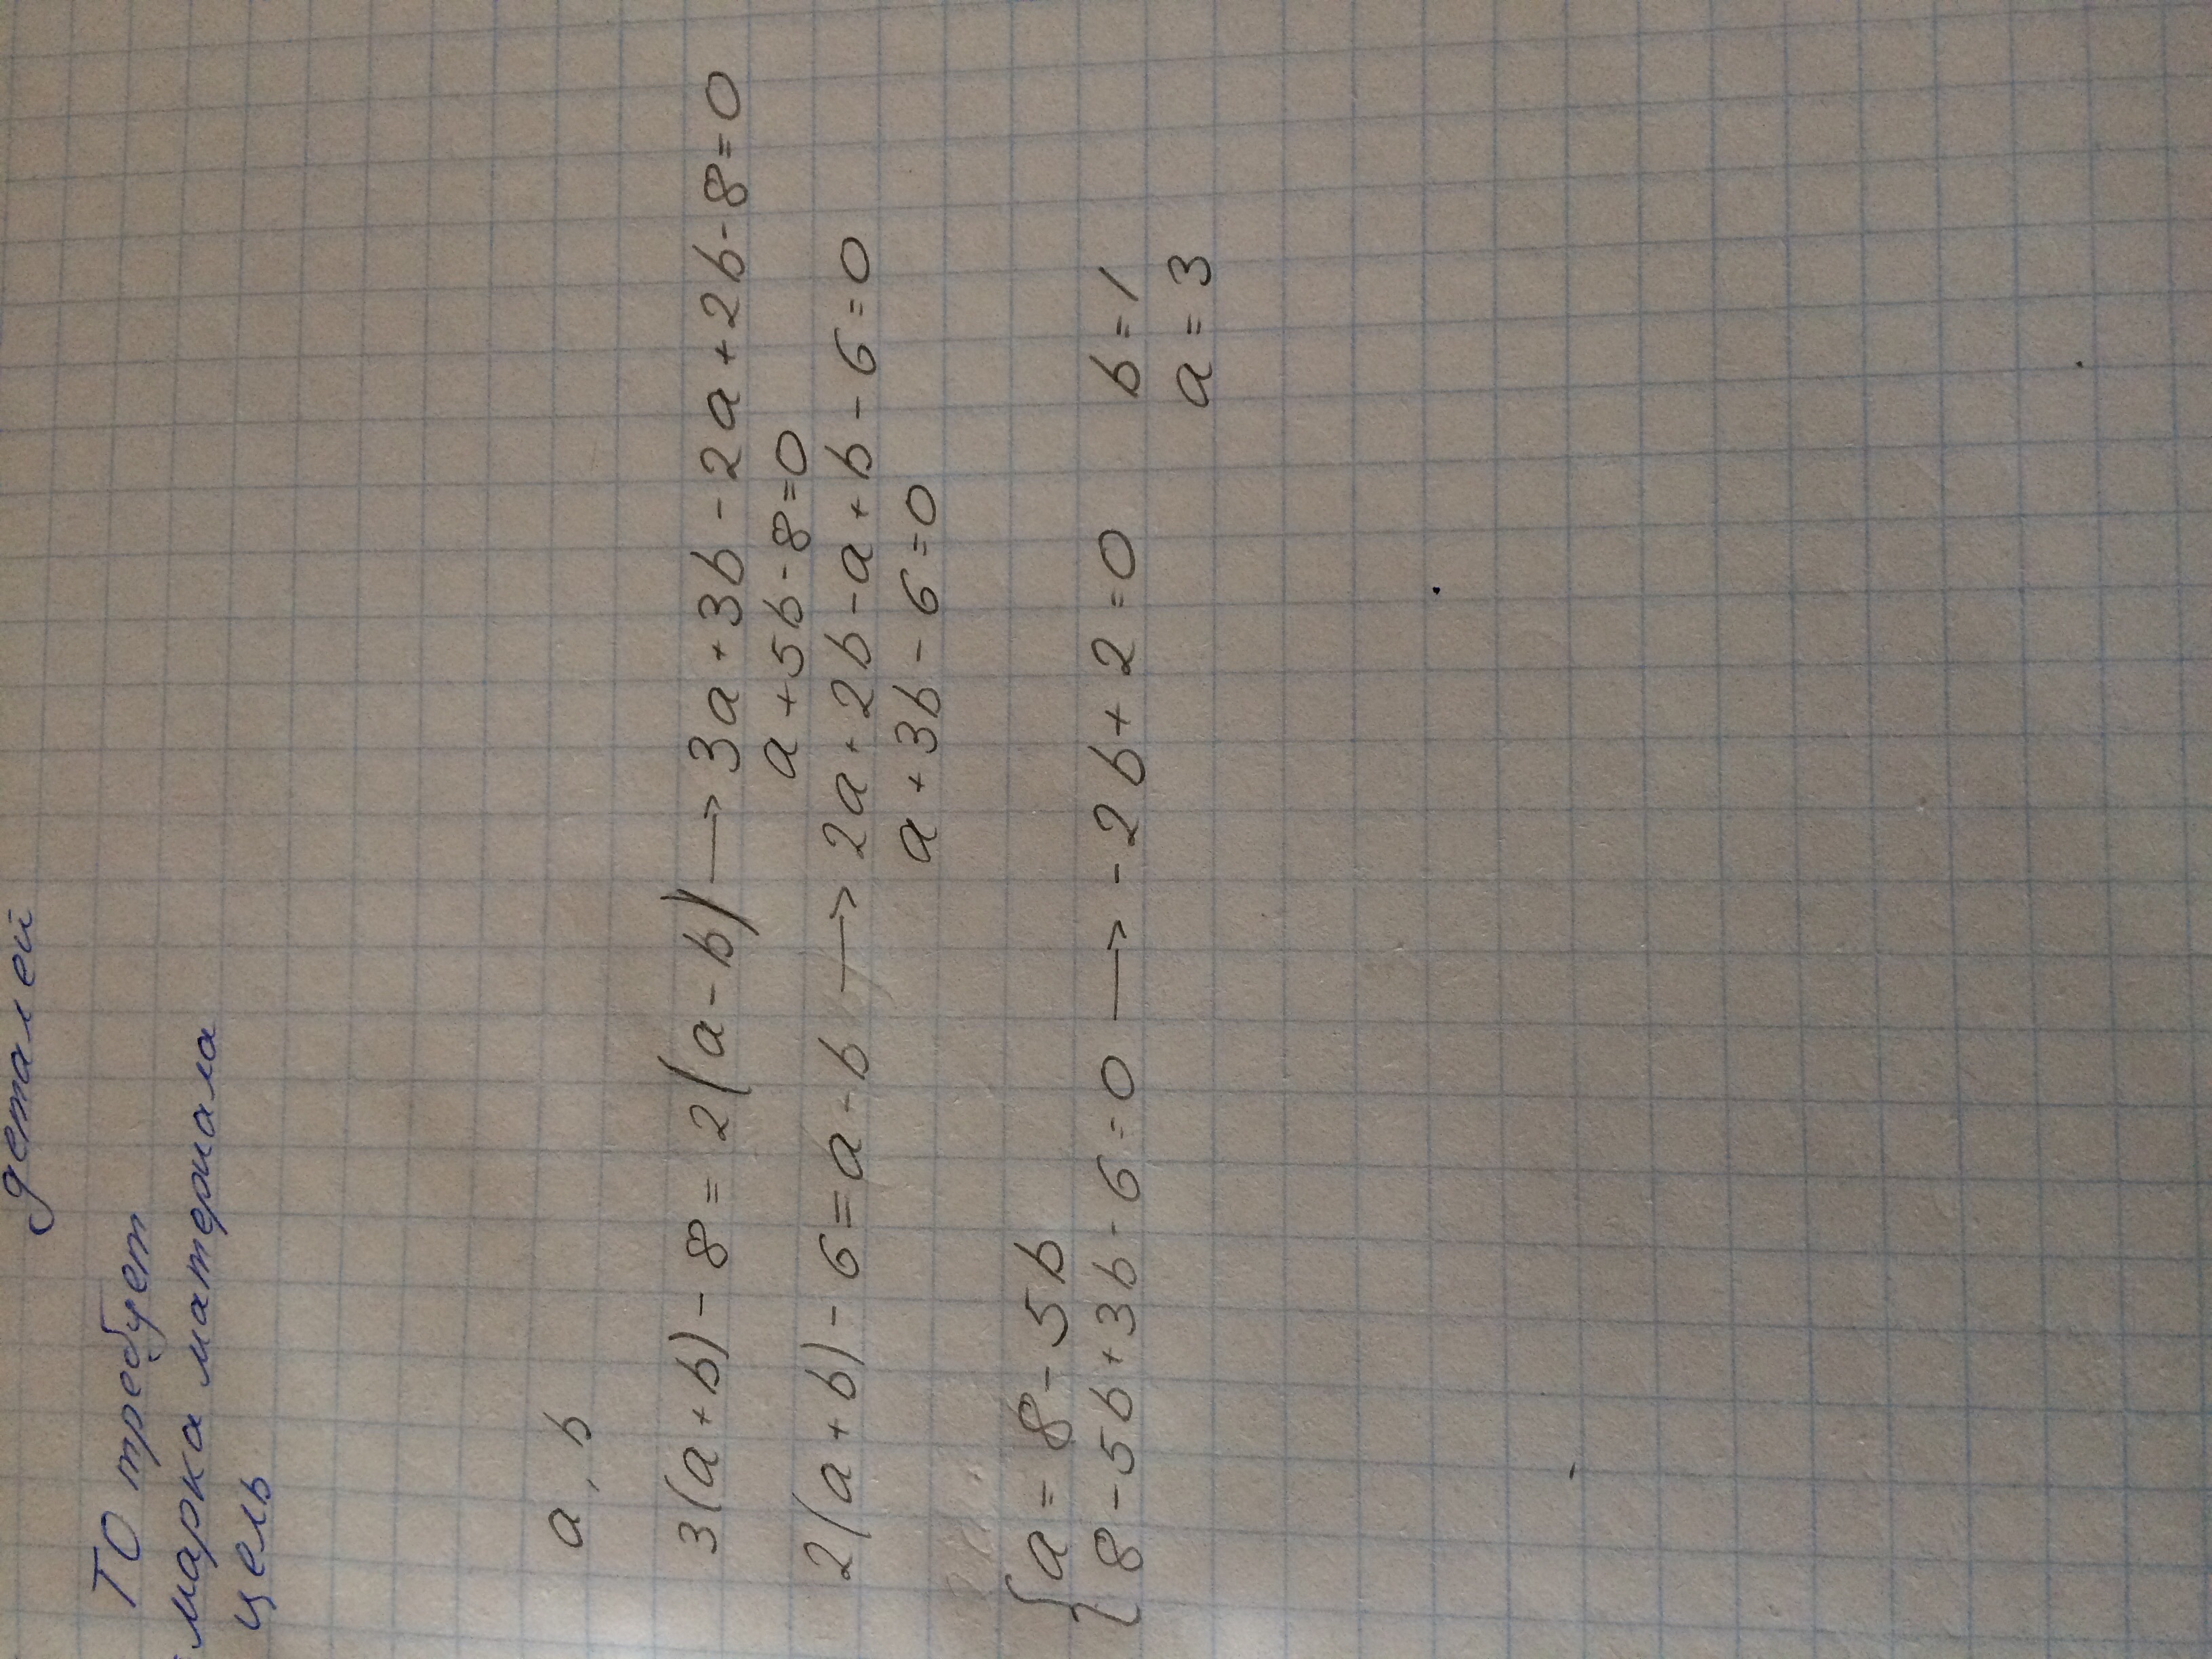 деталей
ТО требует
марка материала
цель
a, b
3(a+b)-8=2(a-b) → 3a+3b-2a+2b-8=0
a+5b-8=0
2(a+b)-6=a-b → 2a+2b-a+b-6=0
a+3b-6=0
{a=8-5b
{8-5b+3b-6=0 → -2b+2=0 b=1
a=3